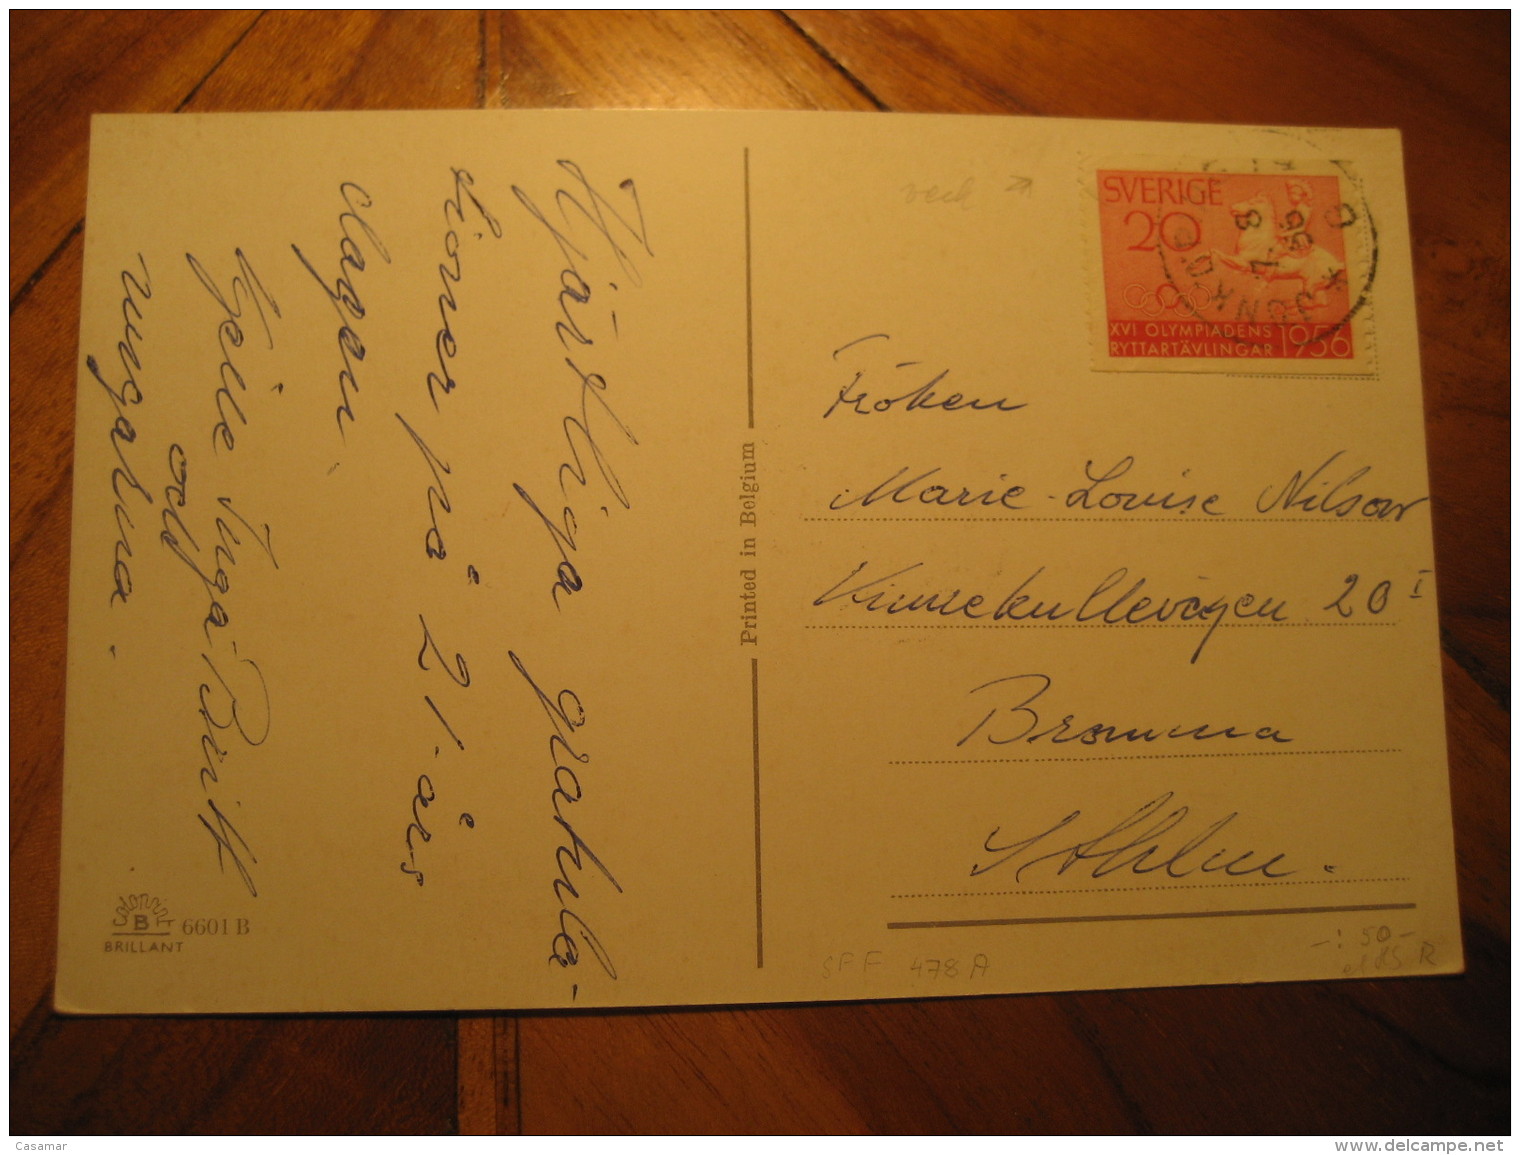 Hjärtliga gratula-
tioner på 21-års
dagen
Kjelle Inga-Britt
och
ungarna.
6601 B
BRILLANT
Printed in Belgium
veck
SVERIGE
20
XVI OLYMPIADENS
RYTTARTÄVLINGAR
1956
8
7
56
Fröken
Marie-Louise Nilsson
Kinnekullevägen 20 I
Bromma
Sthlm.
SFF 478A
-: 50 -
R
Casamar
www.delcampe.net